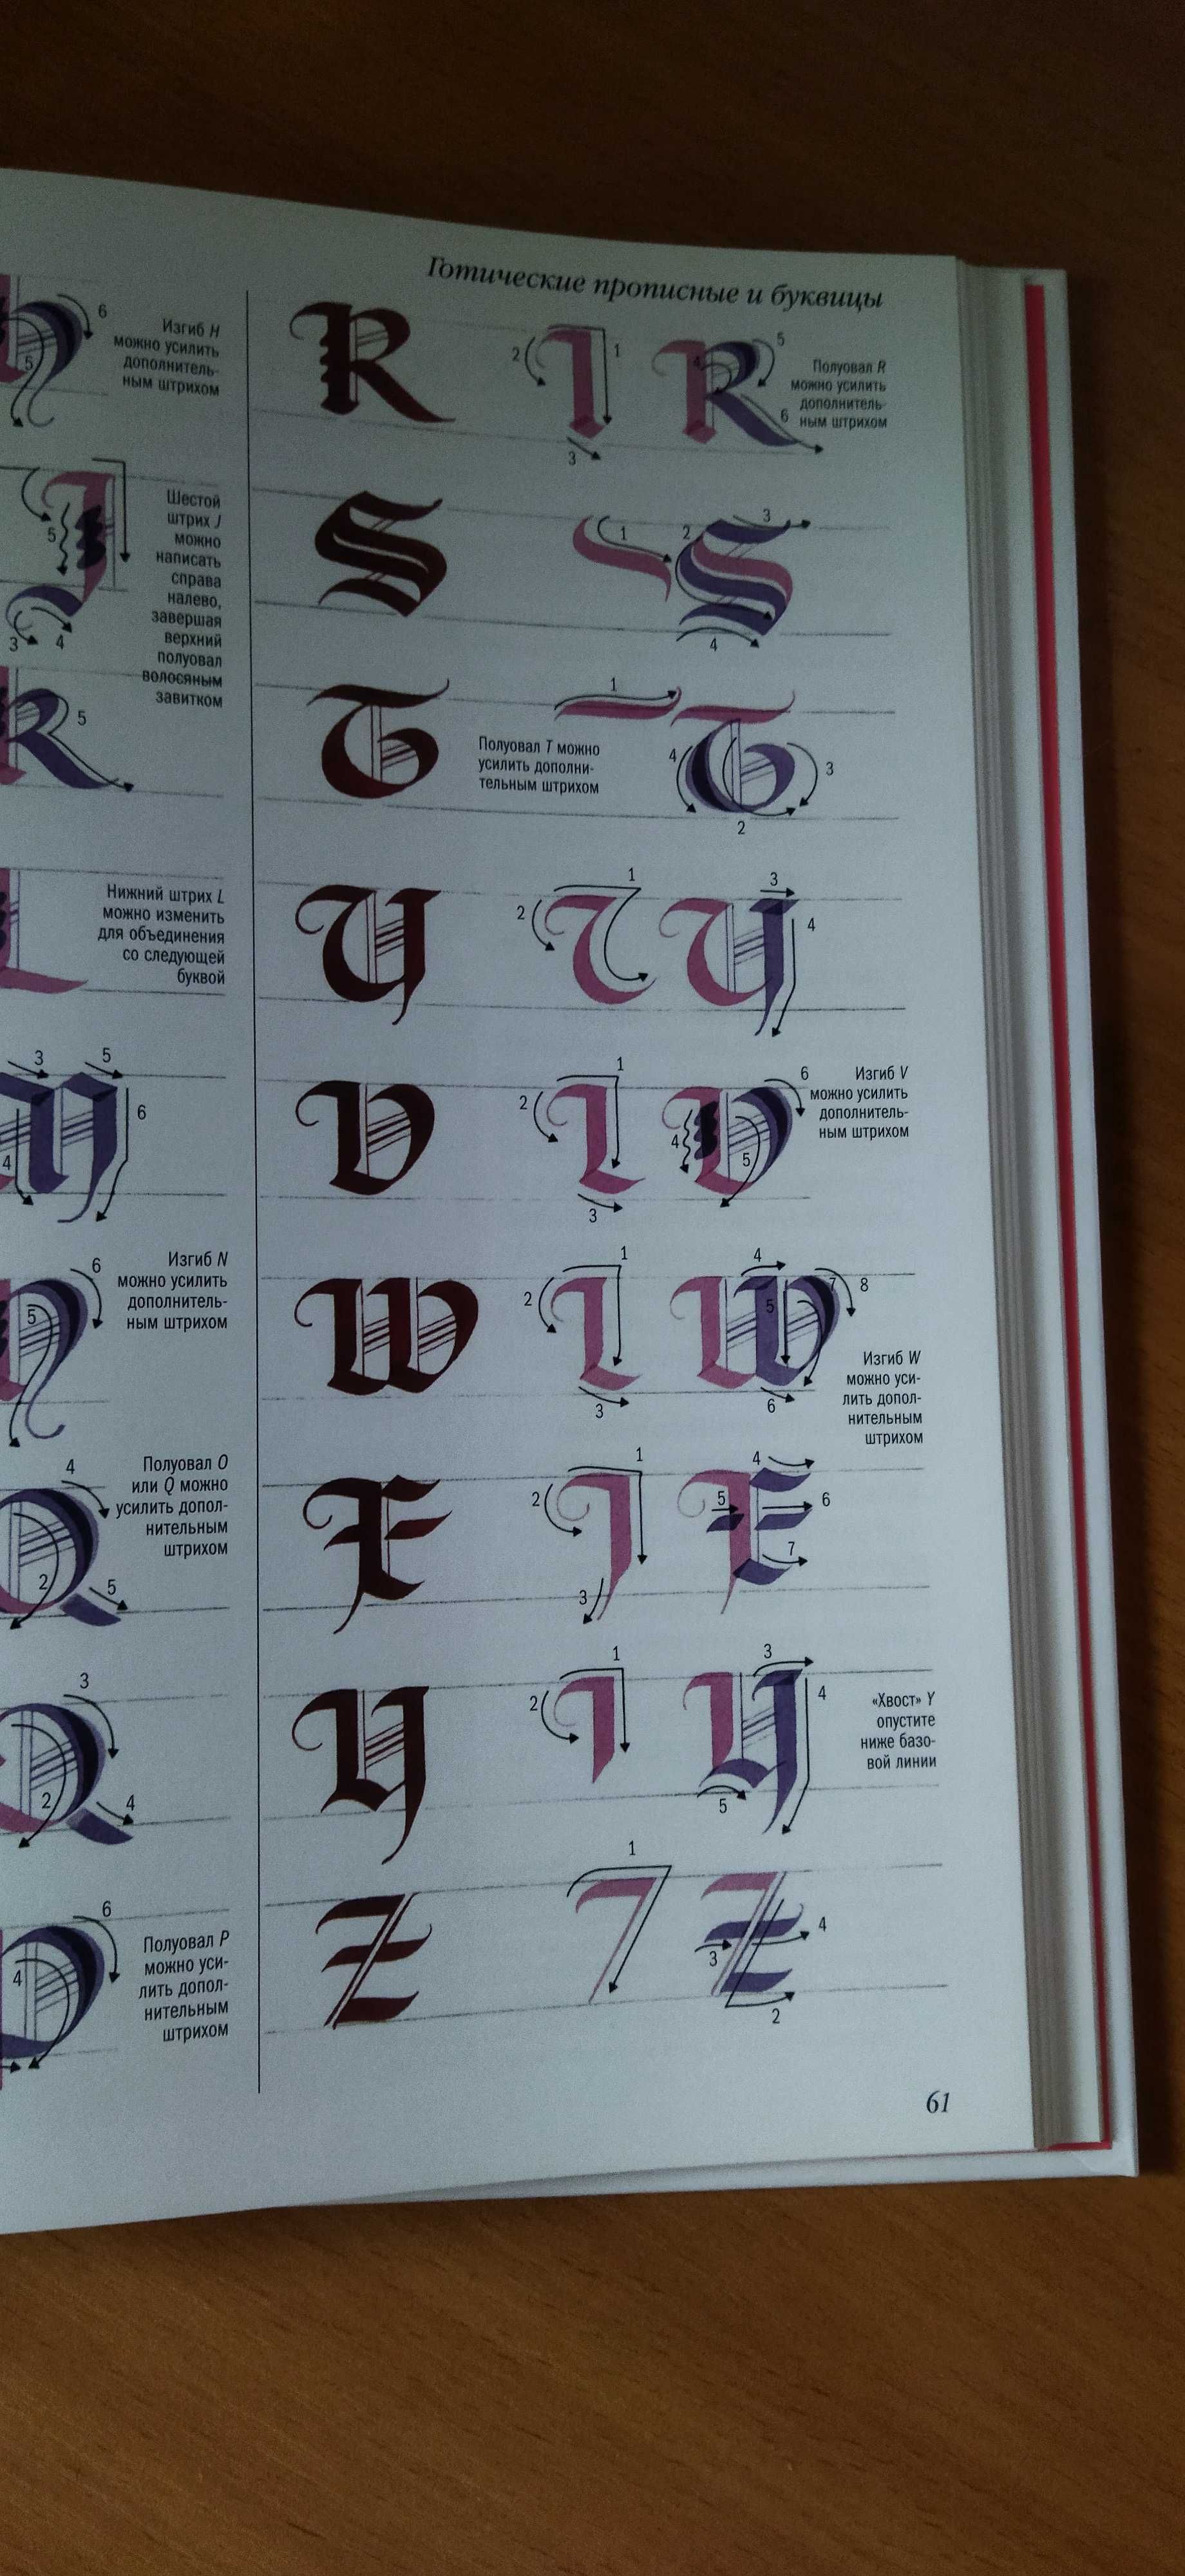 Готические прописные и буквицы
6
5
Изгиб H
можно усилить
дополнитель-
ным штрихом
5
3
4
Шестой
штрих J
можно
написать
справа
налево,
завершая
верхний
полуовал
волосяным
завитком
5
Нижний штрих L
можно изменить
для объединения
со следующей
буквой
3
5
4
6
6
5
Изгиб N
можно усилить
дополнитель-
ным штрихом
4
2
5
Полуовал O
или Q можно
усилить допол-
нительным
штрихом
3
2
4
6
4
Полуовал P
можно уси-
лить допол-
нительным
штрихом
R
2
1
3
4
5
6
Полуовал R
можно усилить
дополнитель-
ным штрихом
S
1
2
3
4
T
Полуовал T можно
усилить дополни-
тельным штрихом
1
4
3
2
U
1
2
3
4
V
1
2
3
4
5
6
Изгиб V
можно усилить
дополнитель-
ным штрихом
W
1
2
3
4
5
7
8
6
Изгиб W
можно уси-
лить допол-
нительным
штрихом
X
1
2
3
4
5
6
7
Y
1
2
3
4
5
«Хвост» Y
опустите
ниже базо-
вой линии
Z
1
3
4
2
61